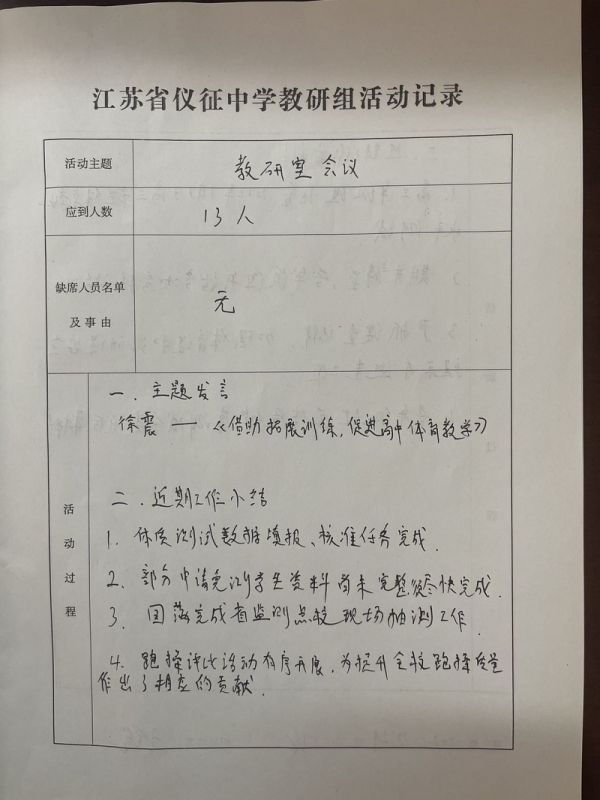 江苏省仪征中学教研组活动记录
活动主题
教研室会议
应到人数
13人
缺席人员名单
及事由
无
活动过程
一、主题发言
徐震 —— 《借助拓展训练,促进高中体育教学》
二、近期工作小结
1、体质测试数据填报、核准任务完成.
2、部分申请免测学生资料尚未完整,须尽快完成.
3、圆满完成省监测点校现场抽测工作.
4、跑操评比活动有序开展,为提升全校跑操质量
作出了相应的贡献.